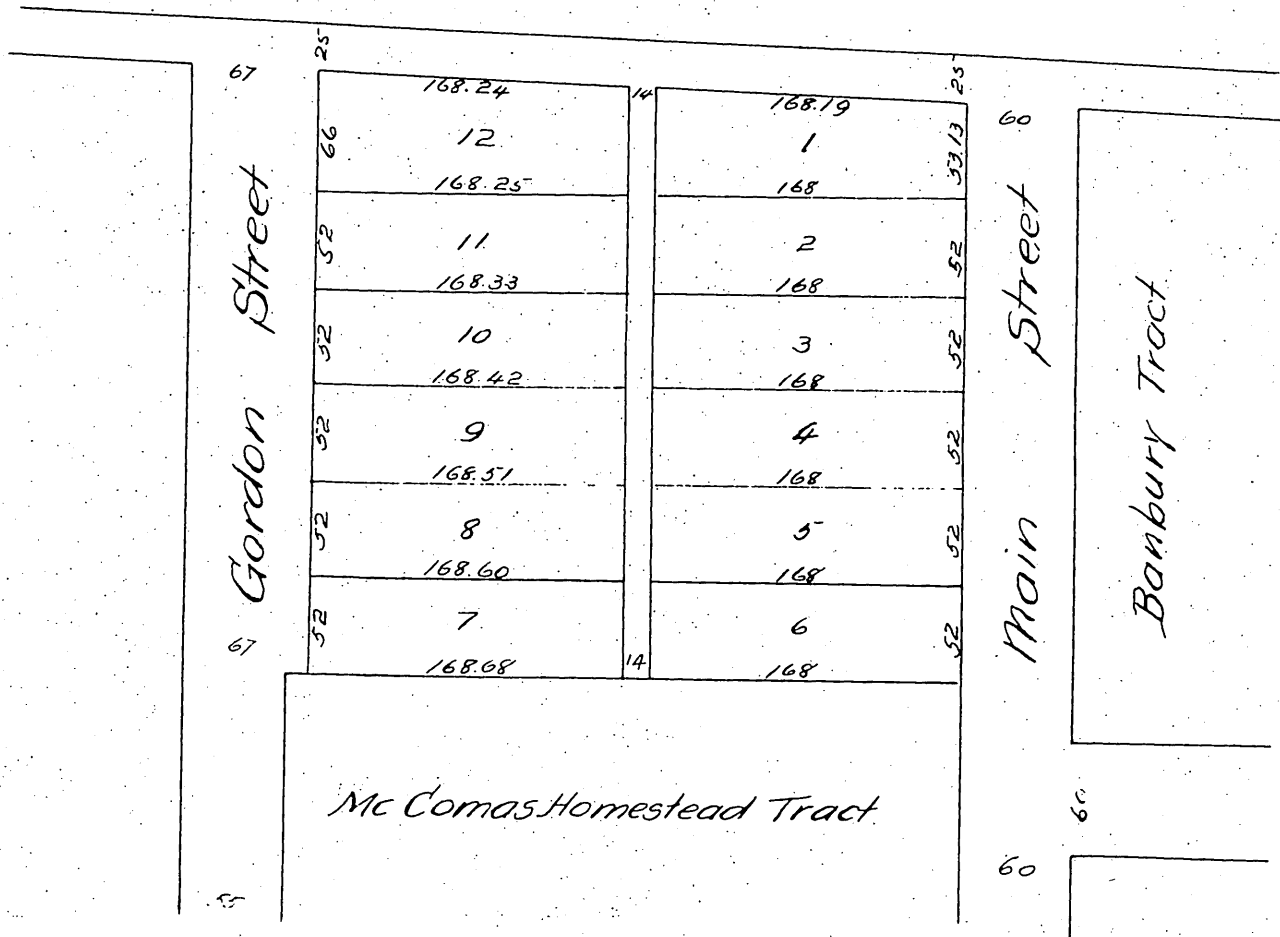 25
25
67
168.24
14
168.19
60
66
12
1
53.13
168.25
168
52
11
2
52
168.33
168
52
10
3
52
168.42
168
52
9
4
52
168.51
168
52
8
5
52
168.60
168
52
7
6
52
67
168.68
14
168
Gordon Street
Main Street
Banbury Tract
Mc Comas Homestead Tract
60
60
55